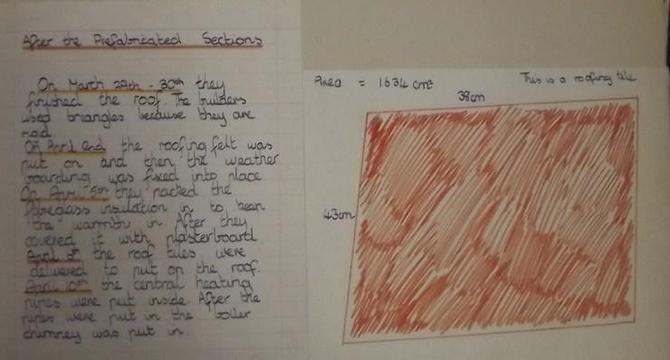 After the Prefabricated Sections
On March 29th - 30th they
finished the roof. The builders
used triangles because they are
On April 2nd the roofing felt was
put on and then the weather
boarding was fixed into place
On April they packed the
insulation in to keep
the warmth in. After they
covered it with plasterboard
April the roof tiles were
delivered to put on the roof.
April 10th the central heating
pipes were put inside. After the
pipes were put in the boiler
chimney was put in.
Area = 1634 cm²
This is a roofing tile
38cm
43cm